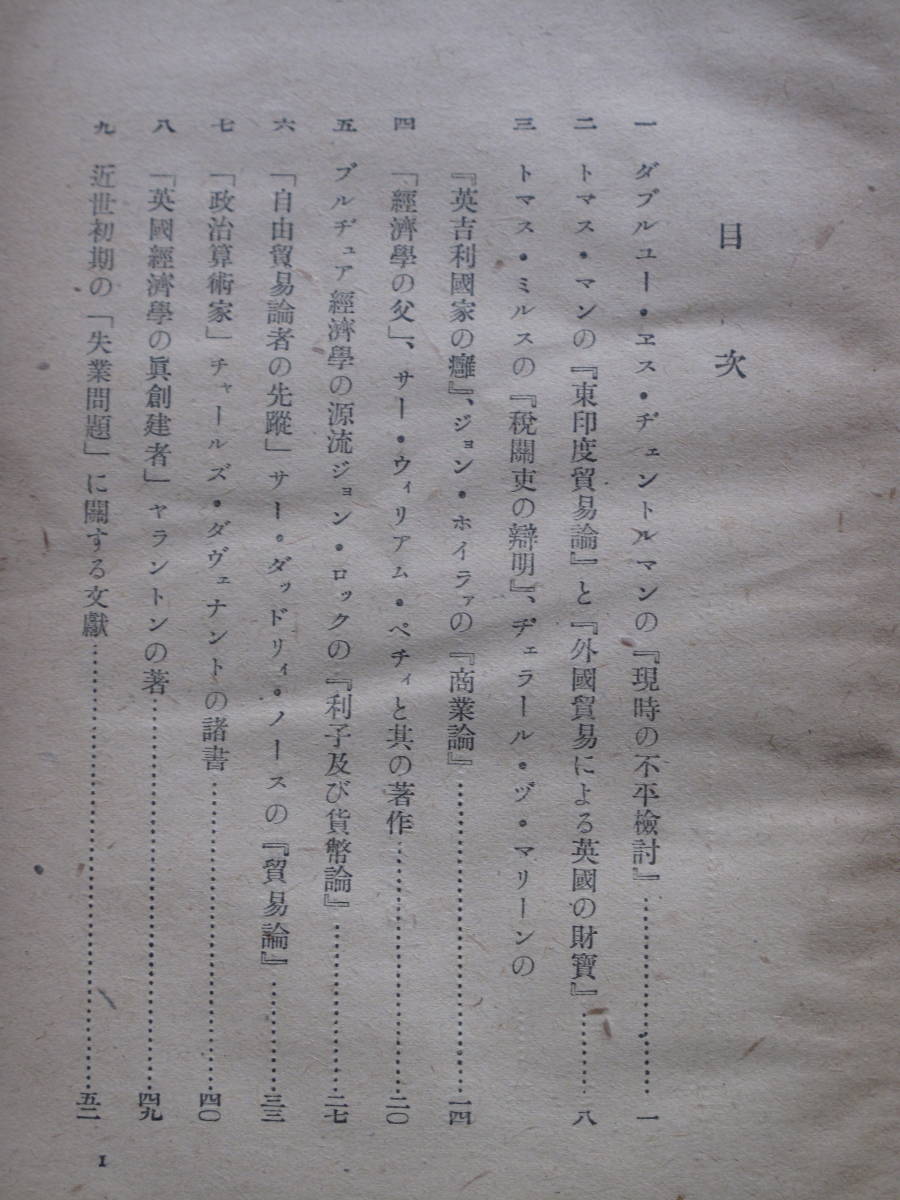 目次
一 ダブルユー・ヱス・ヂェントルマンの『現時の不平檢討』…………一
二 トマス・マンの『東印度貿易論』と『外國貿易による英國の財寶』…………八
三 トマス・ミルスの『稅關吏の辯明』、ヂェラール・ヅ・マリーンの
『英吉利國家の癰』、ジョン・ホイラァの『商業論』…………一四
四 「經濟學の父」、サー・ウィリアム・ペチィと其の著作…………二〇
五 ブルヂュア經濟學の源流ジョン・ロックの『利子及び貨幣論』…………二七
六 「自由貿易論者の先蹤」サー・ダッドリィ・ノースの『貿易論』…………三三
七 「政治算術家」チャールズ・ダヴェナントの諸書…………四〇
八 「英國經濟學の眞創建者」ヤラントンの著…………四九
九 近世初期の「失業問題」に關する文獻…………五二
1